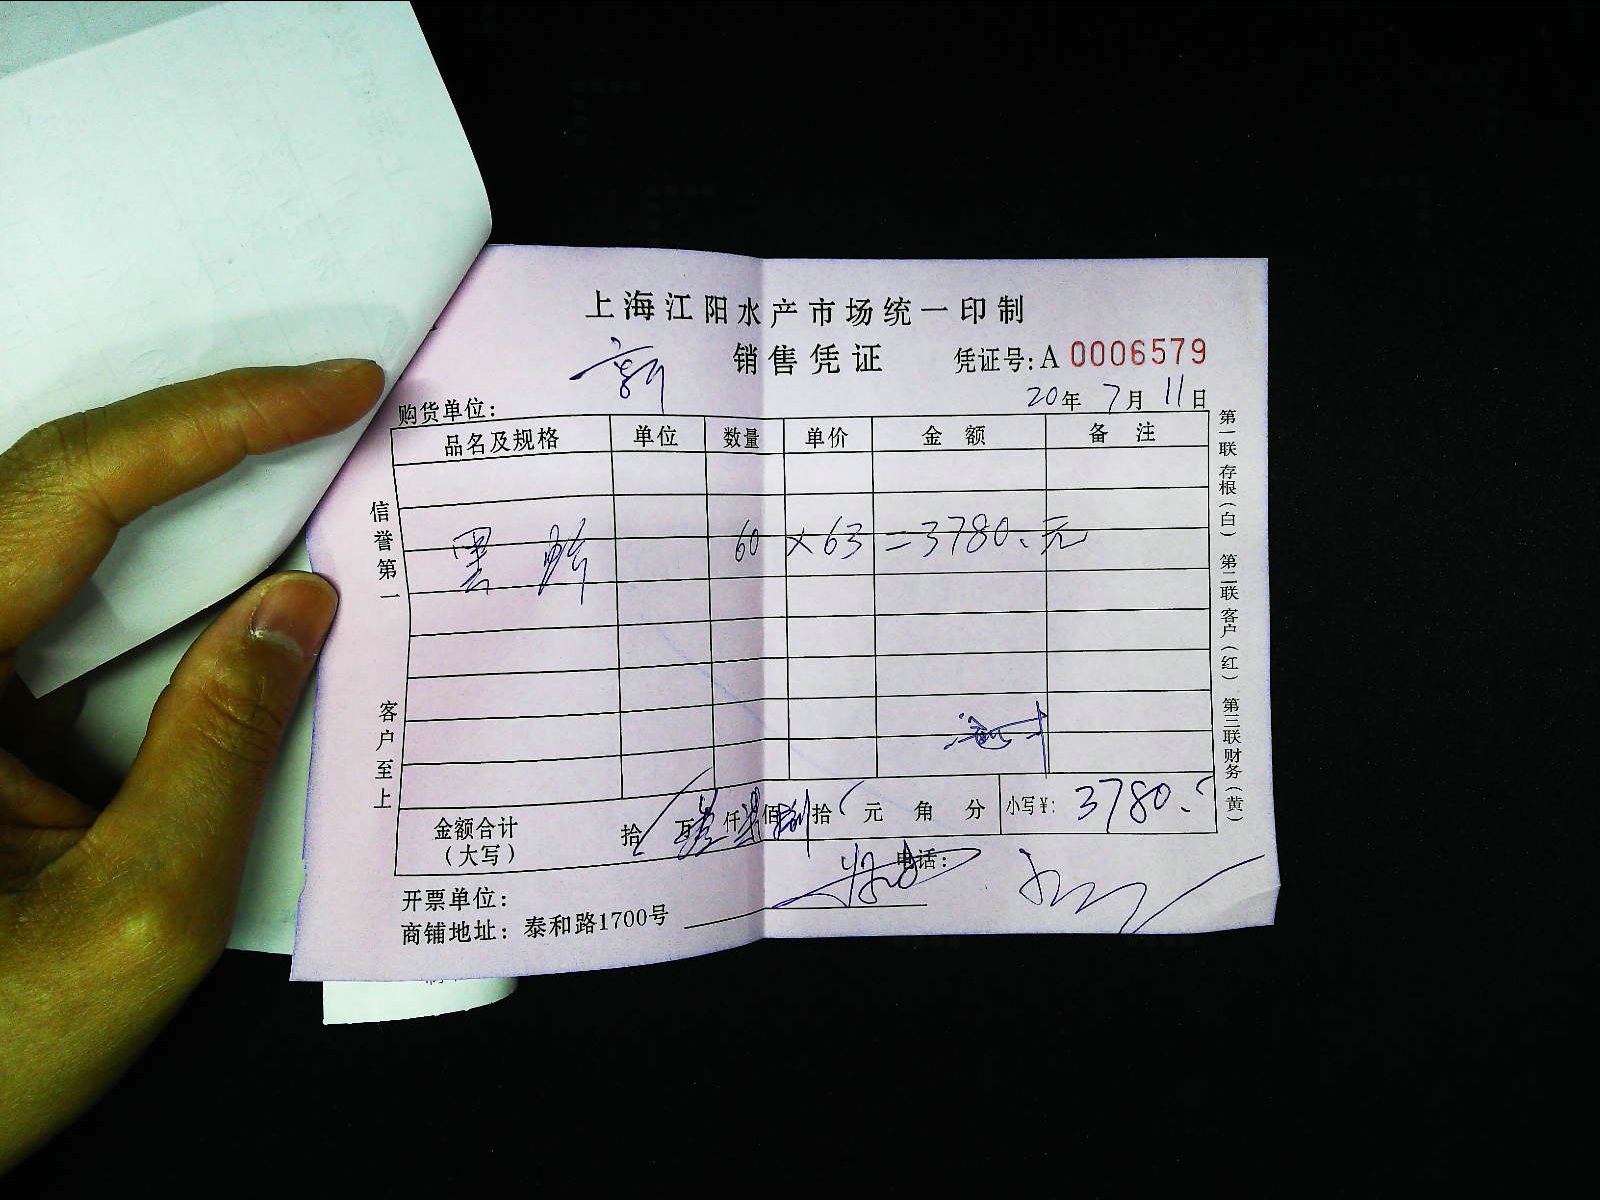 上海江阳水产市场统一印制
销售凭证
凭证号:A 0006579
购货单位:
20年 7月 11日
品名及规格 单位 数量 单价 金额 备注
黑 60 ×63 =3780.元
金额合计(大写) 拾 万叁仟柒佰捌拾 元 角 分 小写¥: 3780.
开票单位: 电话:
商铺地址: 泰和路1700号
信誉第一
客户至上
第一联存根(白) 第二联客户(红) 第三联财务(黄)